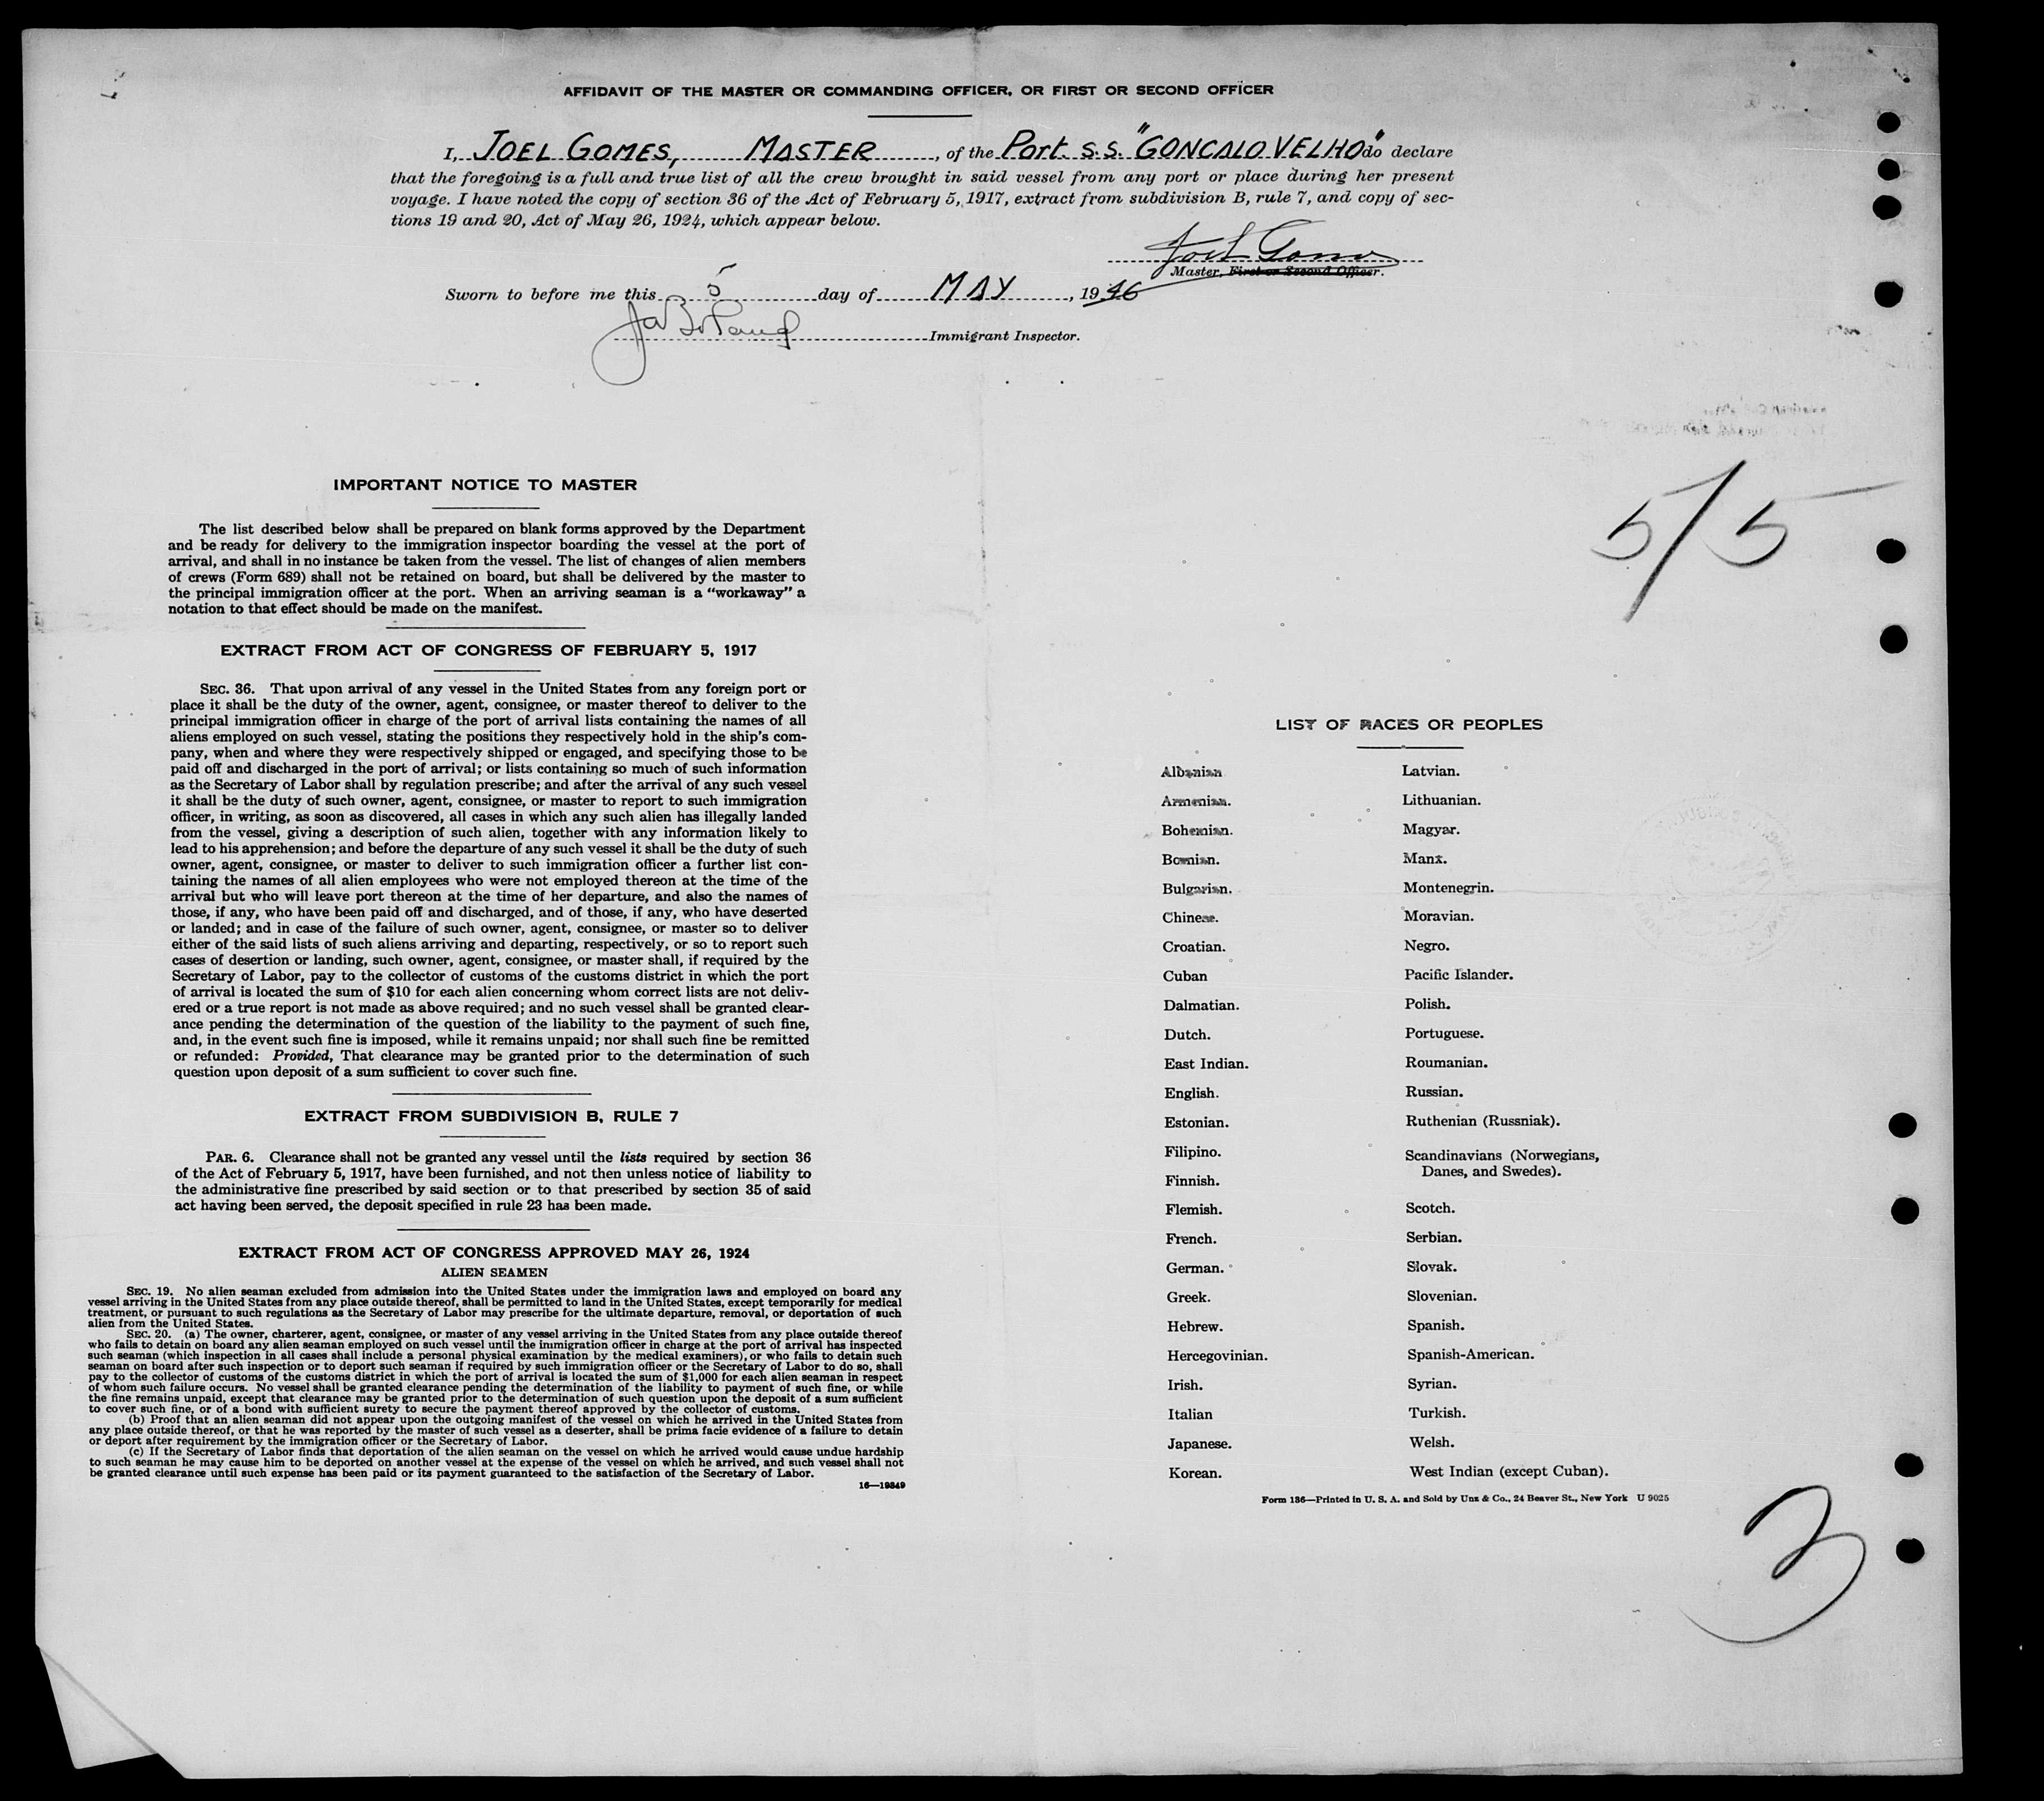 AFFIDAVIT OF THE MASTER OR COMMANDING OFFICER, OR FIRST OR SECOND OFFICER
I, JOEL GOMES, MASTER, of the Port. S.S. "GONCALO VELHO" do declare
that the foregoing is a full and true list of all the crew brought in said vessel from any port or place during her present
voyage. I have noted the copy of section 36 of the Act of February 5, 1917, extract from subdivision B, rule 7, and copy of sec-
tions 19 and 20, Act of May 26, 1924, which appear below.
Joel Gomes
Master, First or Second Officer.
Sworn to before me this 5 day of MAY, 1946
Immigrant Inspector.
5/5
IMPORTANT NOTICE TO MASTER
The list described below shall be prepared on blank forms approved by the Department
and be ready for delivery to the immigration inspector boarding the vessel at the port of
arrival, and shall in no instance be taken from the vessel. The list of changes of alien members
of crews (Form 689) shall not be retained on board, but shall be delivered by the master to
the principal immigration officer at the port. When an arriving seaman is a "workaway" a
notation to that effect should be made on the manifest.
EXTRACT FROM ACT OF CONGRESS OF FEBRUARY 5, 1917
SEC. 36. That upon arrival of any vessel in the United States from any foreign port or
place it shall be the duty of the owner, agent, consignee, or master thereof to deliver to the
principal immigration officer in charge of the port of arrival lists containing the names of all
aliens employed on such vessel, stating the positions they respectively hold in the ship's com-
pany, when and where they were respectively shipped or engaged, and specifying those to be
paid off and discharged in the port of arrival; or lists containing so much of such information
as the Secretary of Labor shall by regulation prescribe; and after the arrival of any such vessel
it shall be the duty of such owner, agent, consignee, or master to report to such immigration
officer, in writing, as soon as discovered, all cases in which any such alien has illegally landed
from the vessel, giving a description of such alien, together with any information likely to
lead to his apprehension; and before the departure of any such vessel it shall be the duty of such
owner, agent, consignee, or master to deliver to such immigration officer a further list con-
taining the names of all alien employees who were not employed thereon at the time of the
arrival but who will leave port thereon at the time of her departure, and also the names of
those, if any, who have been paid off and discharged, and of those, if any, who have deserted
or landed; and in case of the failure of such owner, agent, consignee, or master so to deliver
either of the said lists of such aliens arriving and departing, respectively, or so to report such
cases of desertion or landing, such owner, agent, consignee, or master shall, if required by the
Secretary of Labor, pay to the collector of customs of the customs district in which the port
of arrival is located the sum of $10 for each alien concerning whom correct lists are not deliv-
ered or a true report is not made as above required; and no such vessel shall be granted clear-
ance pending the determination of the question of the liability to the payment of such fine,
and, in the event such fine is imposed, while it remains unpaid; nor shall such fine be remitted
or refunded: Provided, That clearance may be granted prior to the determination of such
question upon deposit of a sum sufficient to cover such fine.
EXTRACT FROM SUBDIVISION B, RULE 7
PAR. 6. Clearance shall not be granted any vessel until the lists required by section 36
of the Act of February 5, 1917, have been furnished, and not then unless notice of liability to
the administrative fine prescribed by said section or to that prescribed by section 35 of said
act having been served, the deposit specified in rule 23 has been made.
EXTRACT FROM ACT OF CONGRESS APPROVED MAY 26, 1924
ALIEN SEAMEN
SEC. 19. No alien seaman excluded from admission into the United States under the immigration laws and employed on board any
vessel arriving in the United States from any place outside thereof, shall be permitted to land in the United States, except temporarily for medical
treatment, or pursuant to such regulations as the Secretary of Labor may prescribe for the ultimate departure, removal, or deportation of such
alien from the United States.
SEC. 20. (a) The owner, charterer, agent, consignee, or master of any vessel arriving in the United States from any place outside thereof
who fails to detain on board any alien seaman employed on such vessel until the immigration officer in charge at the port of arrival has inspected
such seaman (which inspection in all cases shall include a personal physical examination by the medical examiners), or who fails to detain such
seaman on board after such inspection or to deport such seaman if required by such immigration officer or the Secretary of Labor to do so, shall
pay to the collector of customs of the customs district in which the port of arrival is located the sum of $1,000 for each alien seaman in respect
of whom such failure occurs. No vessel shall be granted clearance pending the determination of the liability to payment of such fine, or while
the fine remains unpaid, except that clearance may be granted prior to the determination of such question upon the deposit of a sum sufficient
to cover such fine, or of a bond with sufficient surety to secure the payment thereof approved by the collector of customs.
(b) Proof that an alien seaman did not appear upon the outgoing manifest of the vessel on which he arrived in the United States from
any place outside thereof, or that he was reported by the master of such vessel as a deserter, shall be prima facie evidence of a failure to detain
or deport after requirement by the immigration officer or the Secretary of Labor.
(c) If the Secretary of Labor finds that deportation of the alien seaman on the vessel on which he arrived would cause undue hardship
to such seaman he may cause him to be deported on another vessel at the expense of the vessel on which he arrived, and such vessel shall not
be granted clearance until such expense has been paid or its payment guaranteed to the satisfaction of the Secretary of Labor.
16—19849
LIST OF RACES OR PEOPLES
Albanian
Armenian.
Bohemian.
Bosnian.
Bulgarian.
Chinese.
Croatian.
Cuban
Dalmatian.
Dutch.
East Indian.
English.
Estonian.
Filipino.
Finnish.
Flemish.
French.
German.
Greek.
Hebrew.
Hercegovinian.
Irish.
Italian
Japanese.
Korean.
Latvian.
Lithuanian.
Magyar.
Manx.
Montenegrin.
Moravian.
Negro.
Pacific Islander.
Polish.
Portuguese.
Roumanian.
Russian.
Ruthenian (Russniak).
Scandinavians (Norwegians,
Danes, and Swedes).
Scotch.
Serbian.
Slovak.
Slovenian.
Spanish.
Spanish-American.
Syrian.
Turkish.
Welsh.
West Indian (except Cuban).
Form 136—Printed in U. S. A. and Sold by Unz & Co., 24 Beaver St., New York U 9025
3